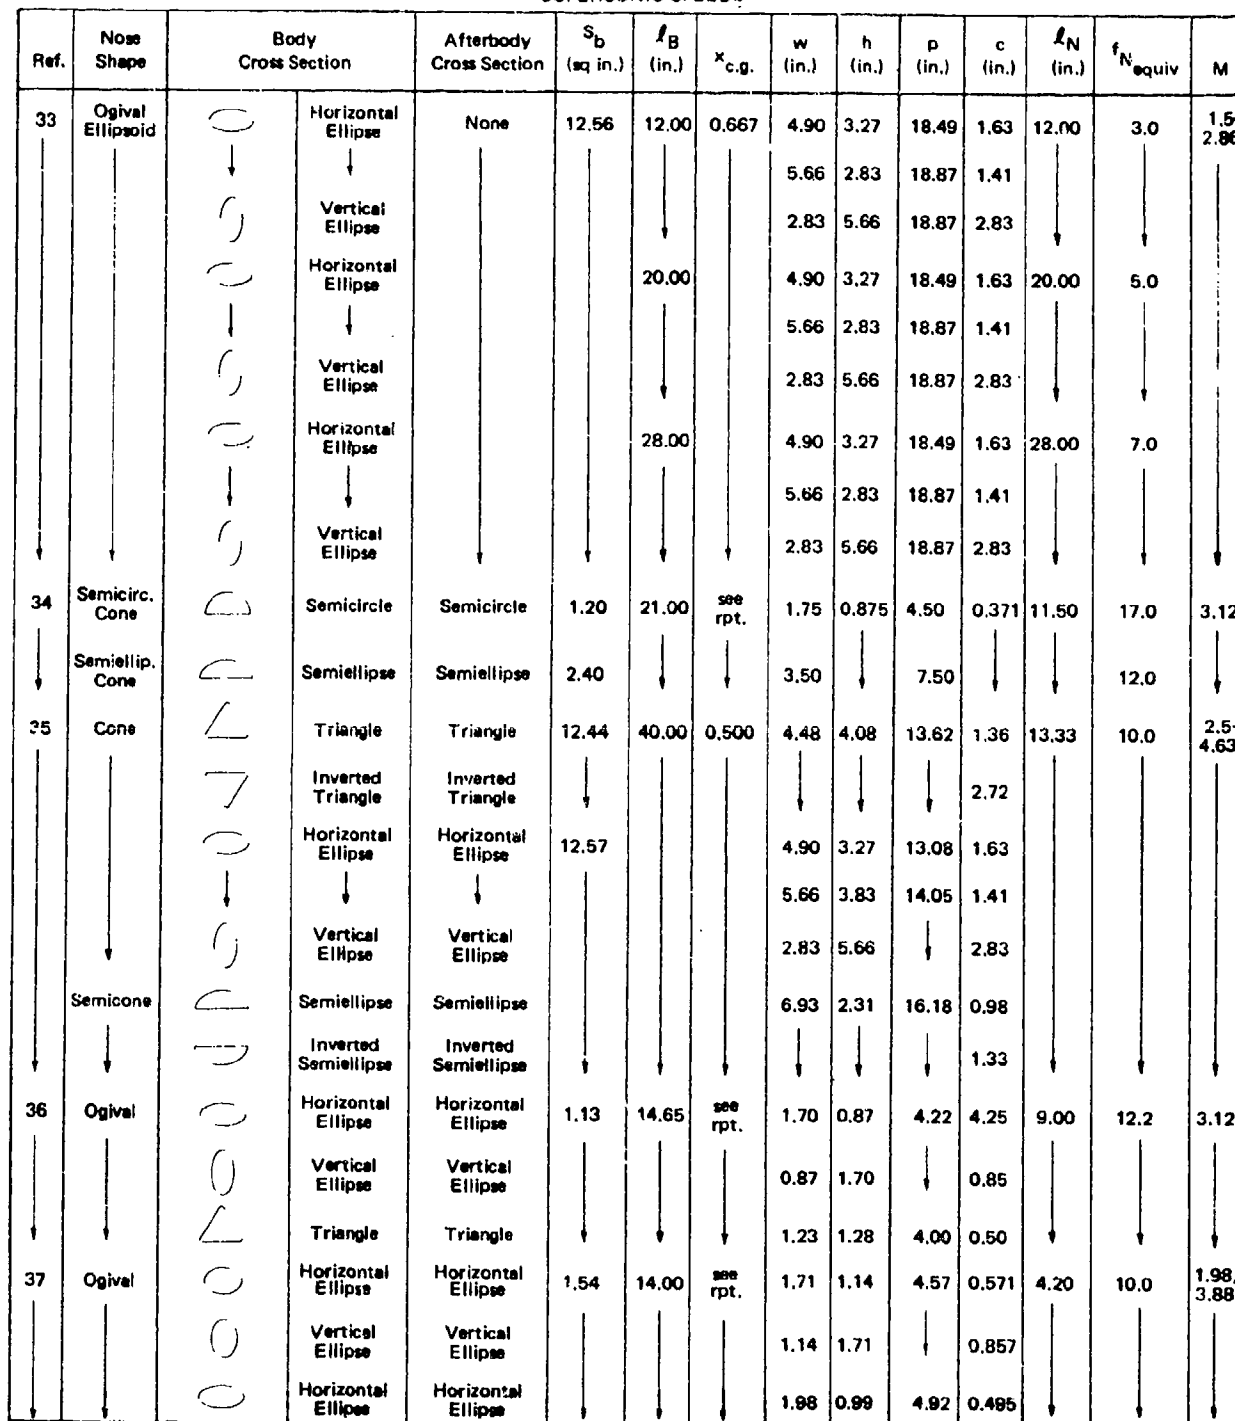 Ref. Nose Shape Body Cross Section Afterbody Cross Section S_b (sq in.) ℓ_B (in.) x_c.g. w (in.) h (in.) p (in.) c (in.) ℓ_N (in.) f_N equiv M
33 Ogival Ellipsoid Horizontal Ellipse None 12.56 12.00 0.667 4.90 3.27 18.49 1.63 12.00 3.0
5.66 2.83 18.87 1.41
Vertical Ellipse 2.83 5.66 18.87 2.83
Horizontal Ellipse 20.00 4.90 3.27 18.49 1.63 20.00 5.0
5.66 2.83 18.87 1.41
Vertical Ellipse 2.83 5.66 18.87 2.83
Horizontal Ellipse 28.00 4.90 3.27 18.49 1.63 28.00 7.0
5.66 2.83 18.87 1.41
Vertical Ellipse 2.83 5.66 18.87 2.83
34 Semicirc. Cone Semicircle Semicircle 1.20 21.00 see rpt. 1.75 0.875 4.50 0.371 11.50 17.0 3.12
Semiellip. Cone Semiellipse Semiellipse 2.40 3.50 7.50 12.0
35 Cone Triangle Triangle 12.44 40.00 0.500 4.48 4.08 13.62 1.36 13.33 10.0 2.5- 4.63
Inverted Triangle Inverted Triangle 2.72
Horizontal Ellipse Horizontal Ellipse 12.57 4.90 3.27 13.08 1.63
5.66 3.83 14.05 1.41
Vertical Ellipse Vertical Ellipse 2.83 5.66 2.83
Semicone Semiellipse Semiellipse 6.93 2.31 16.18 0.98
Inverted Semiellipse Inverted Semiellipse 1.33
36 Ogival Horizontal Ellipse Horizontal Ellipse 1.13 14.65 see rpt. 1.70 0.87 4.22 4.25 9.00 12.2 3.12
Vertical Ellipse Vertical Ellipse 0.87 1.70 0.85
Triangle Triangle 1.23 1.28 4.00 0.50
37 Ogival Horizontal Ellipse Horizontal Ellipse 1.54 14.00 see rpt. 1.71 1.14 4.57 0.571 4.20 10.0 1.98, 3.88
Vertical Ellipse Vertical Ellipse 1.14 1.71 0.857
Horizontal Ellipse Horizontal Ellipse 1.98 0.99 4.92 0.495